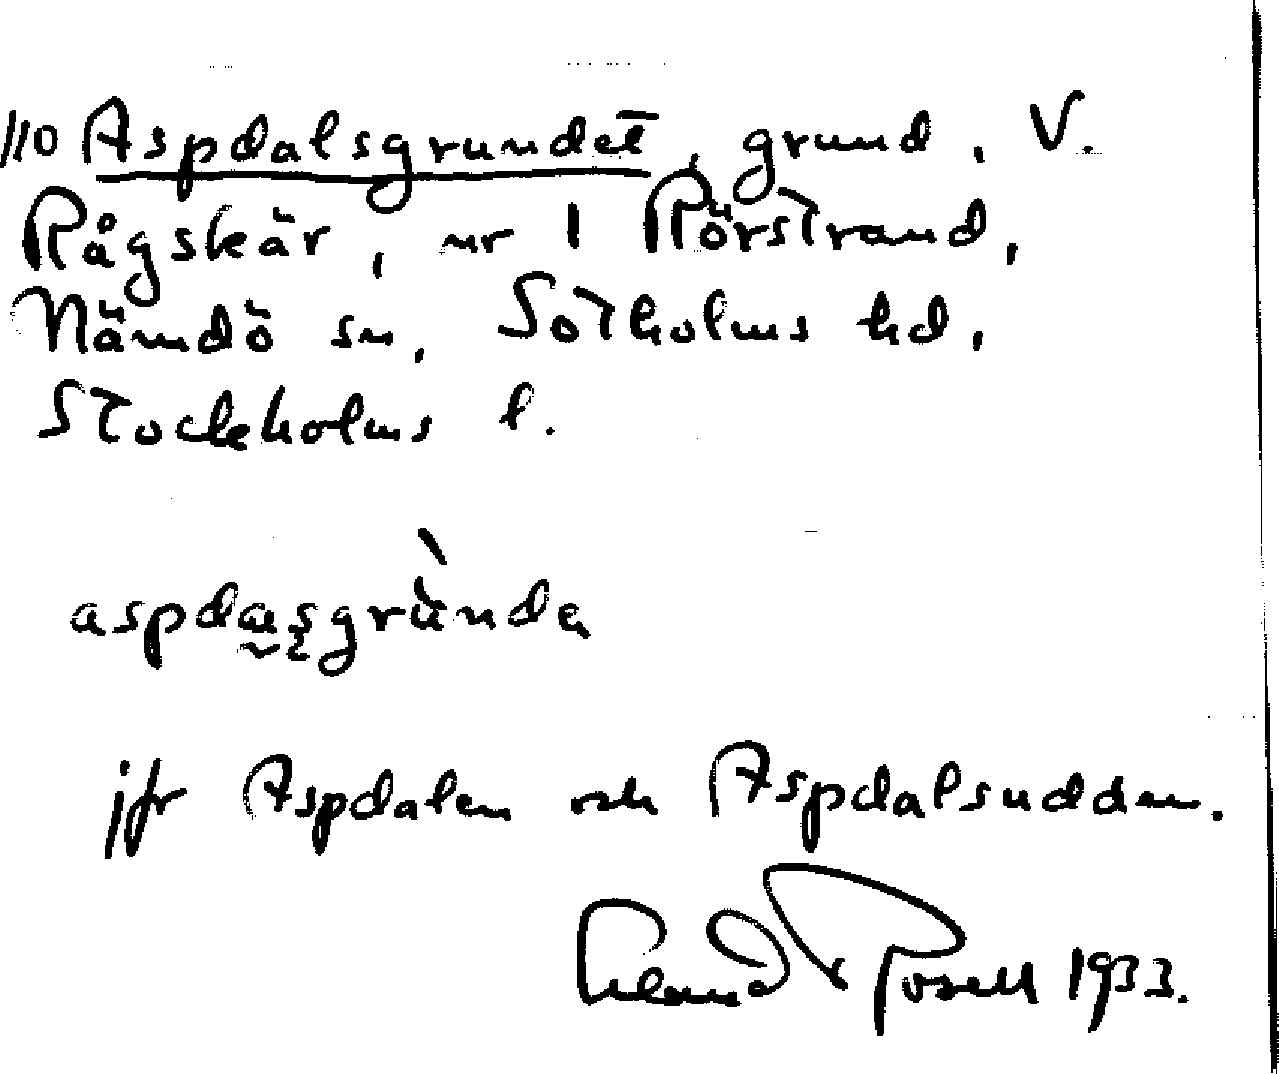 110 Aspdalsgrundet, grund, V.
Rågskär, nr 1 Rörstrand,
Nämdö sn, Sotholms hd,
Stockholms l.
aspdasgrùnde
jfr Aspdalen och Aspdalsudden.
Erland Rosell 1933.